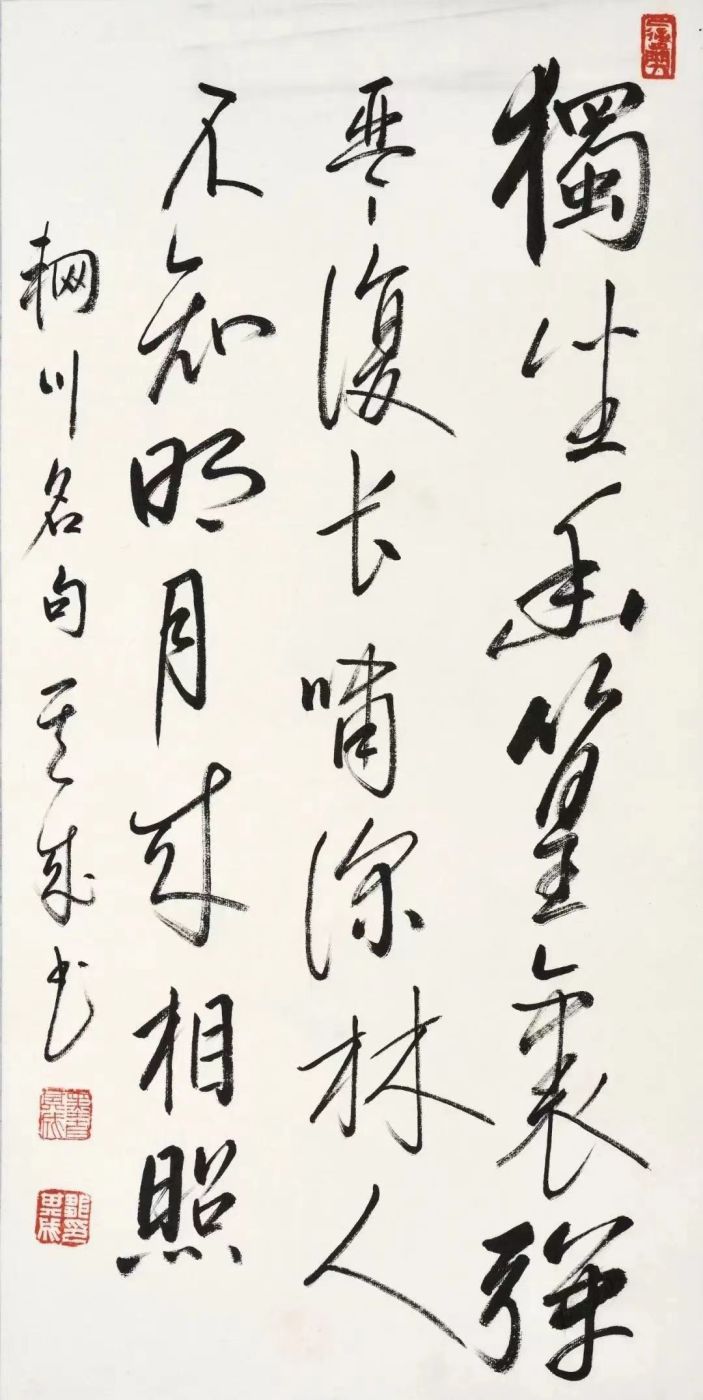 獨坐幽篁裏彈
琴復长嘯深林人
不知明月来相照
輞川名句 成书